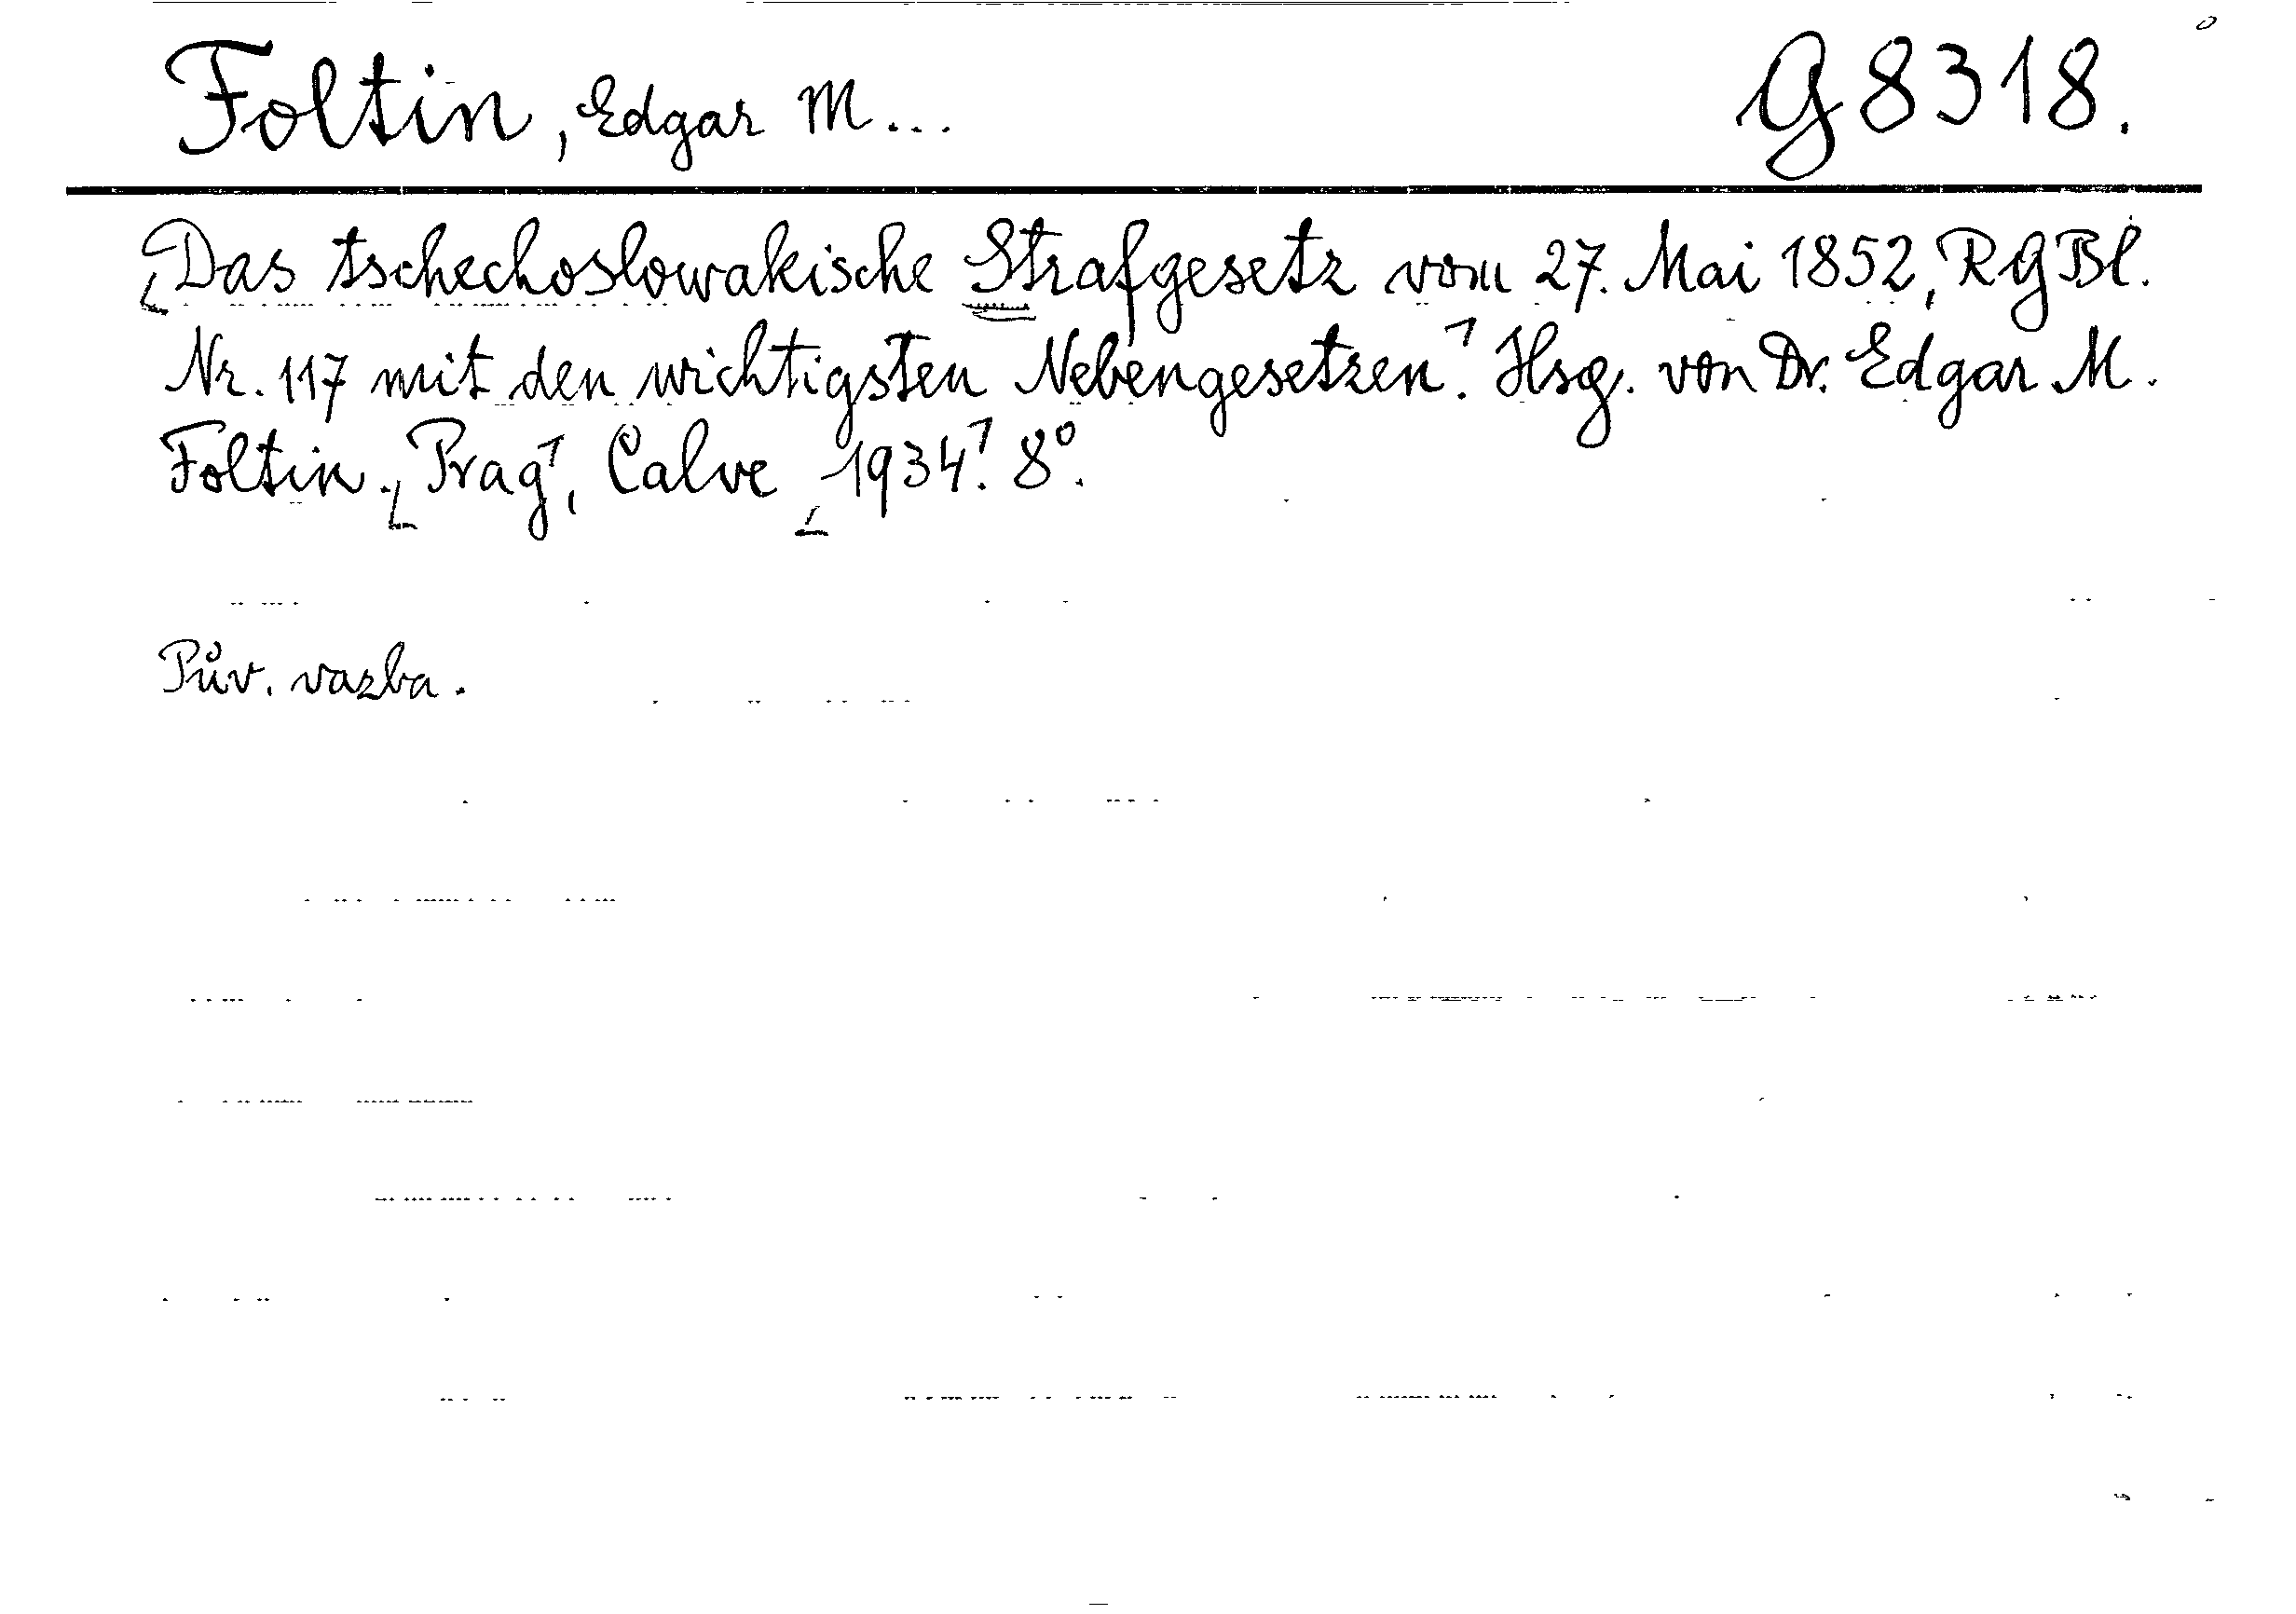 Foltin, Edgar M... G 8318.
Das tschechoslowakische Strafgesetz vom 27. Mai 1852, RGBl.
Nr. 117 mit den wichtigsten Nebengesetzen. Hsg. von Dr. Edgar M.
Foltin. Prag, Calve 1934. 8°.
Pův. vazba.